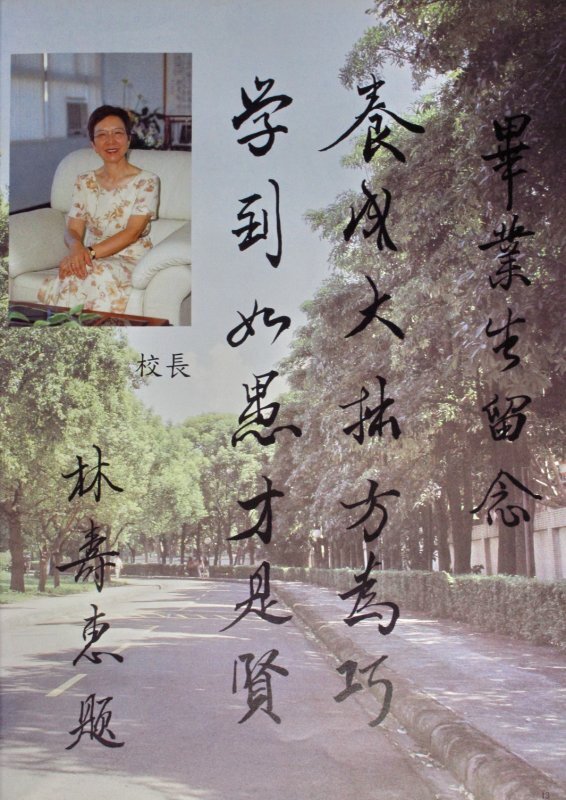 畢業生留念
養成大拙方為巧
学到如愚才是賢
校長
林壽惠題
13